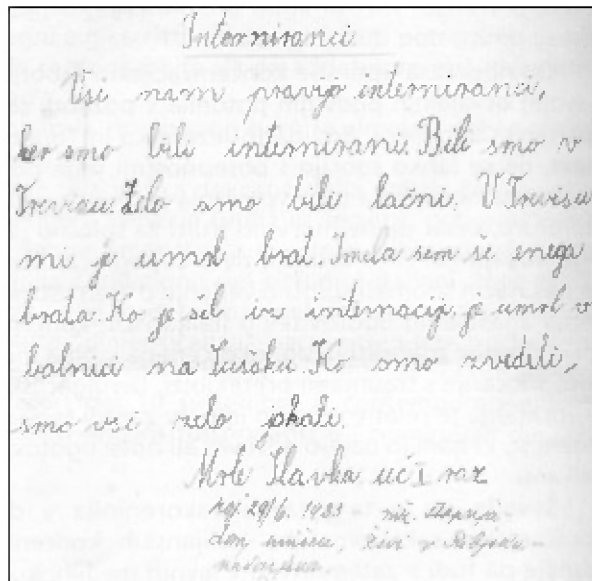 Interniranci
Vsi nam pravijo interniranci,
ker smo bili internirani. Bili smo v
Trevisu. Zelo smo bili lačni. V Trevisu
mi je umrl brat. Imela sem še enega
brata. Ko je šel iz internacije je umrl v
bolnici na Sušaku. Ko smo zvedeli,
smo vsi zelo jokali.
Mole Slavka uč. I raz
roj 29/6. 1931